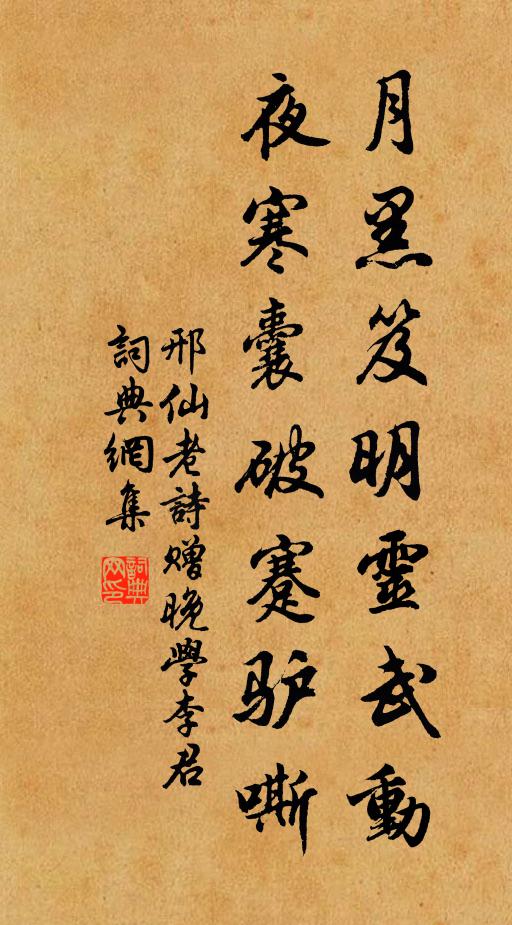 月黑笈明靈武動
夜寒囊破蹇驴嘶
邢仙老詩贈晚學李君
詞典網集
詞典網印